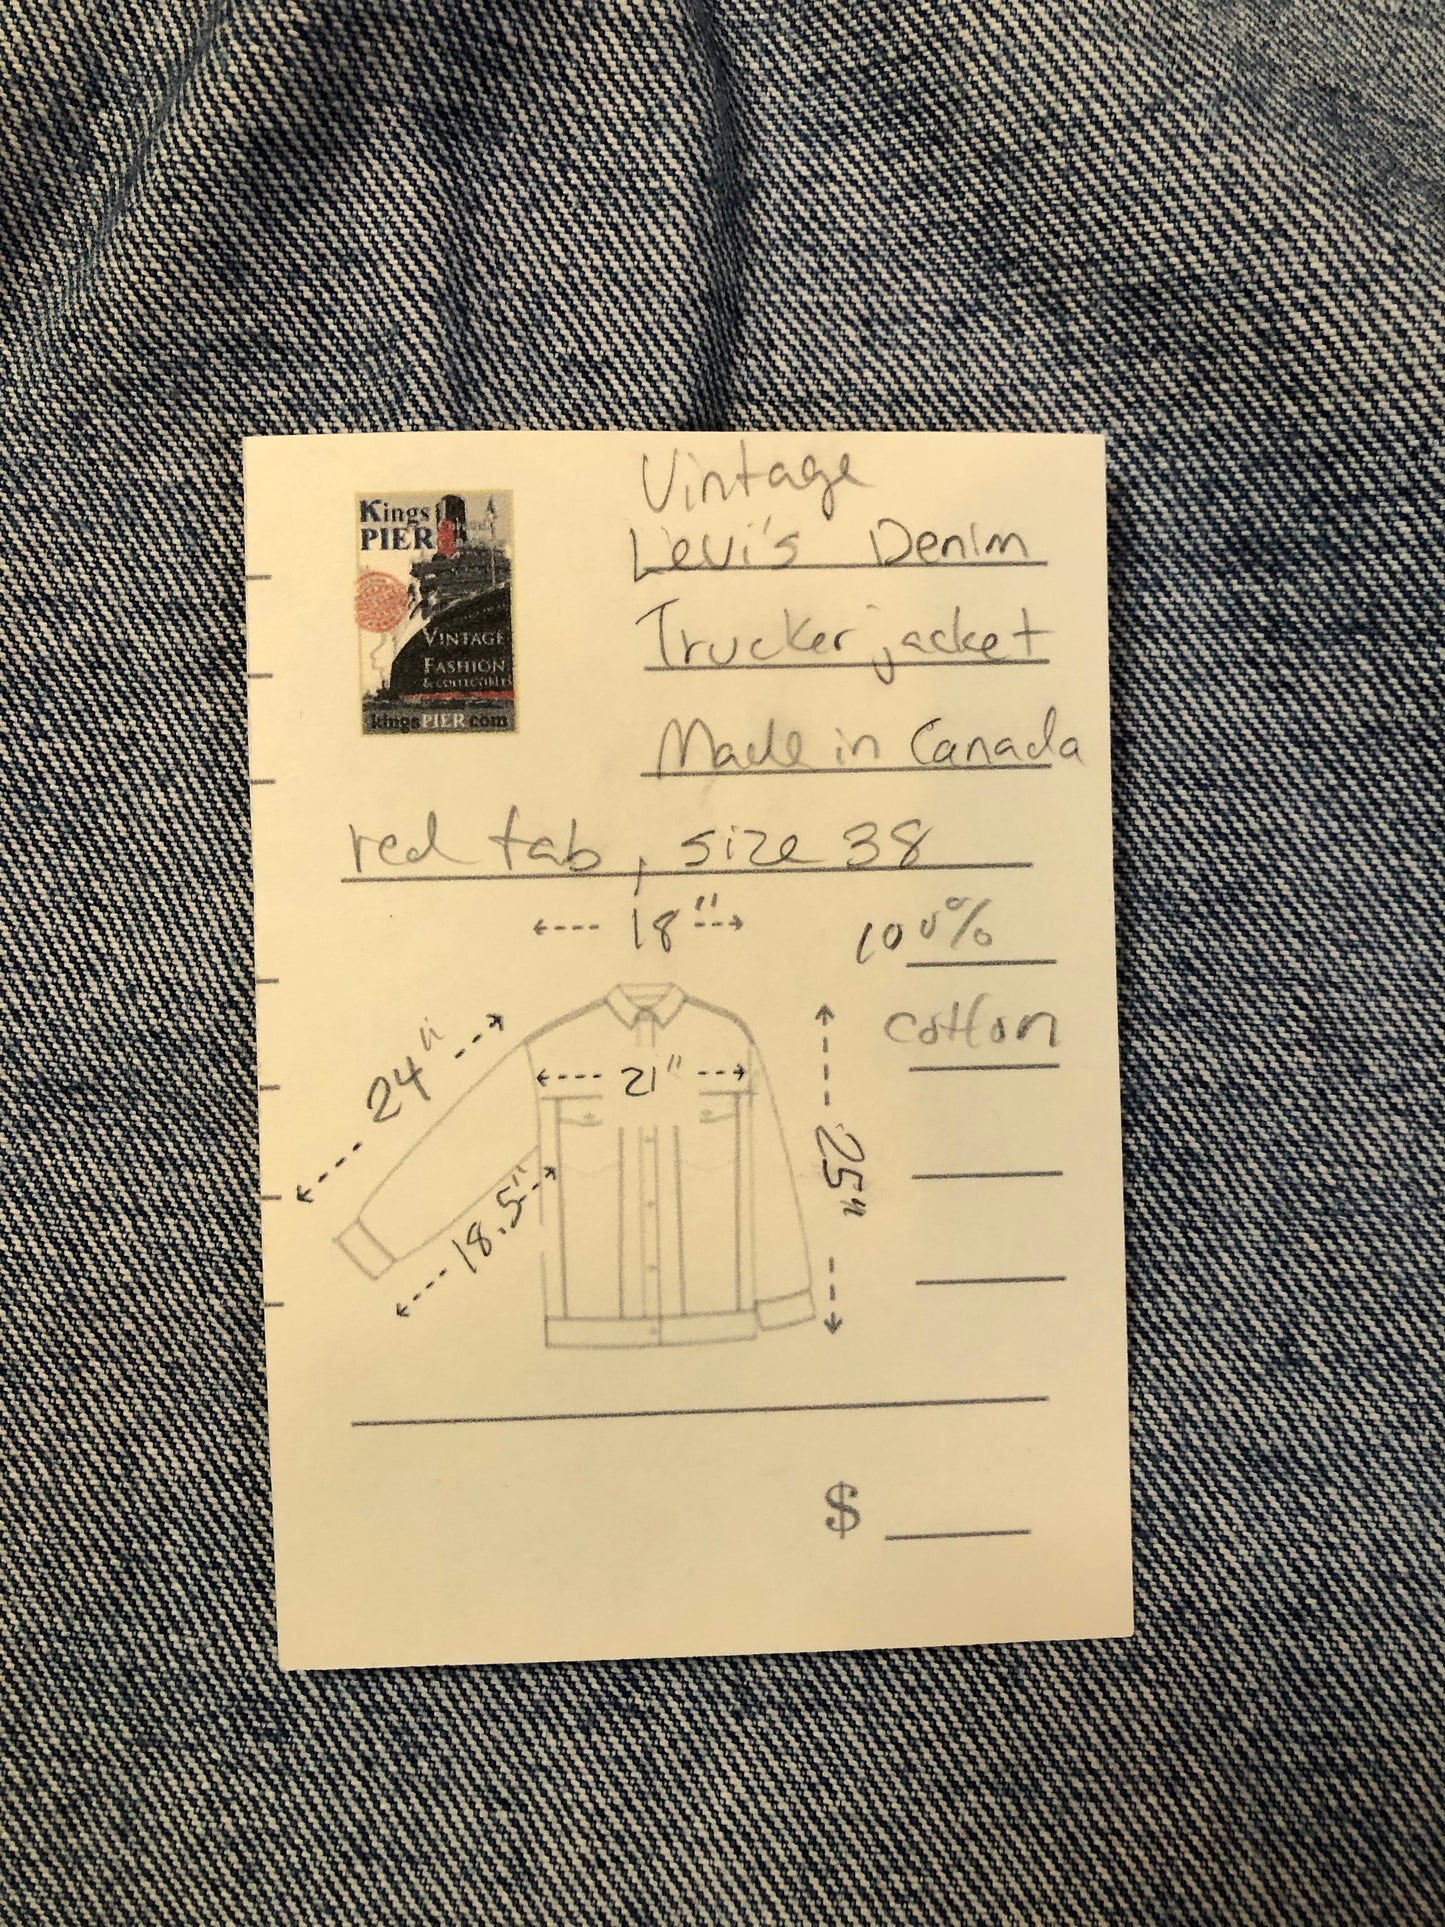 Kings
PIER
VINTAGE
FASHION
& COLLECTIBLES
kingsPIER.com
Vintage
Levi's Denim
Trucker jacket
Made in Canada
red tab, size 38
18"
100%
cotton
24"
21"
25"
18.5"
$